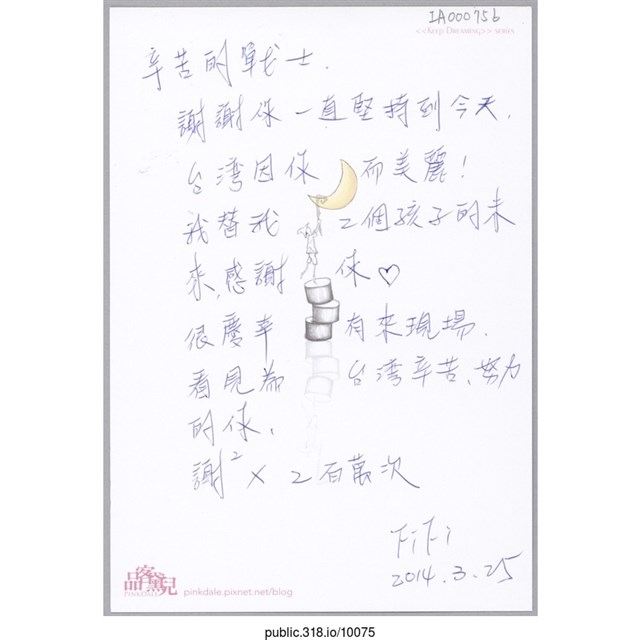 IA000756
<<Keep Dreaming>> series
辛苦的戰士.
謝謝你一直堅持到今天,
台湾因你 而美麗!
我替我 2個孩子的未
來,感謝 你♡
很慶幸 有來現場.
看見為 台湾辛苦、努力
的你,
謝² × 2百萬次
FiFi
2014.3.25
品客黛兒
PINKDALE
pinkdale.pixnet.net/blog
public.318.io/10075